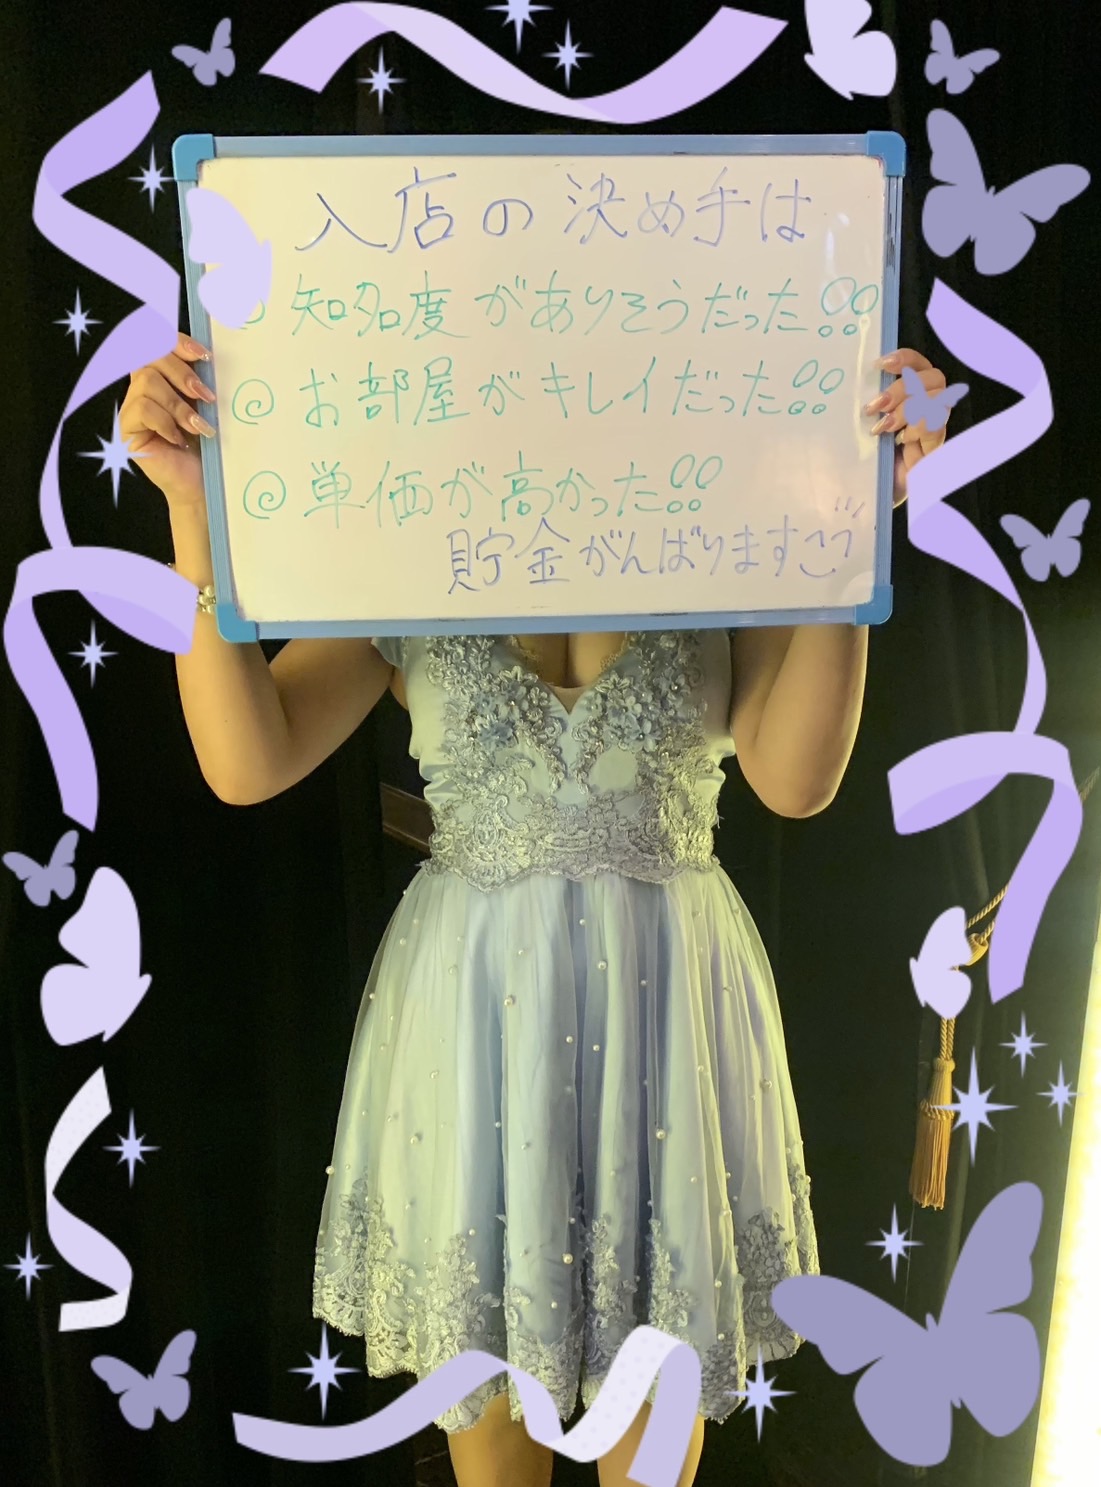 入店の決め手は
知名度がありそうだった!!
◎お部屋がキレイだった!!
◎単価が高かった!!
貯金がんばります